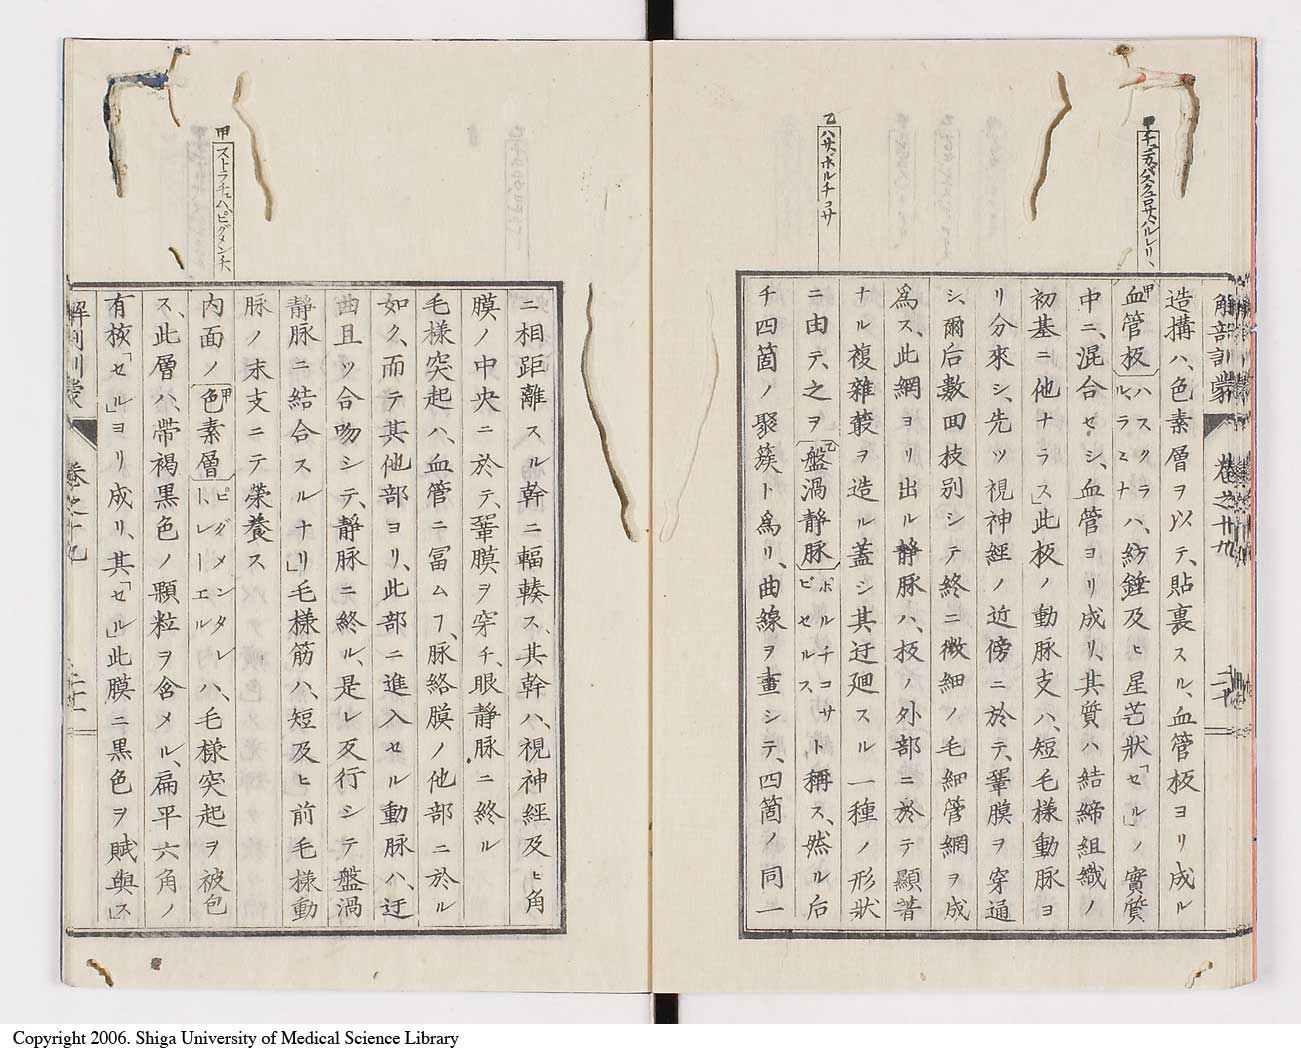 解剖訓蒙
卷之十九
二十
甲
乙
ハサ、ボルチコサ
造搆ハ、色素層ヲ以テ、貼裏スル、血管板ヨリ成ル
甲血管板ハスクラルラミナハ、紡錘及ヒ星芒狀「セル」ノ實質
中ニ、混合セシ、血管ヨリ成リ、其質ハ結締組織ノ
初基ニ他ナラス」此板ノ動脈支ハ、短毛樣動脈ヨ
リ分來シ、先ツ視神經ノ近傍ニ於テ、鞏膜ヲ穿通
シ、爾后數回枝別シテ終ニ微細ノ毛細管網ヲ成
爲ス、此網ヨリ出ル靜脈ハ、板ノ外部ニ於テ顯著
ナル複雜叢ヲ造ル蓋シ其迂廻スル一種ノ形狀
ニ由テ、之ヲ乙盤渦靜脈ボルチコサビセルスト稱ス、然ル后
チ四箇ノ聚簇ト爲リ、曲線ヲ畫シテ、四箇ノ同一
ニ相距離スル幹ニ輻輳ス、其幹ハ、視神經及ヒ角
膜ノ中央ニ於テ、鞏膜ヲ穿チ、眼靜脈ニ終ル
毛樣突起ハ、血管ニ冨ムヿ、脈絡膜ノ他部ニ於ル
如ク、而テ其他部ヨリ、此部ニ進入セル動脈ハ、迂
曲且ツ合吻シテ、靜脈ニ終ル、是レ反行シテ盤渦
靜脈ニ結合スルナリ」毛樣筋ハ、短及ヒ前毛樣動
脈ノ末支ニテ榮養ス
內面ノ甲色素層ピグメンタレト、レーエルハ、毛樣突起ヲ被包
ス、此層ハ、帶褐黑色ノ顆粒ヲ含メル、扁平六角ノ
有核「セル」ヨリ成リ、其「セル」此膜ニ黑色ヲ賦與ス」
甲
ストラチュハピグメンチ、
解剖訓蒙
卷之十九
Copyright 2006. Shiga University of Medical Science Library